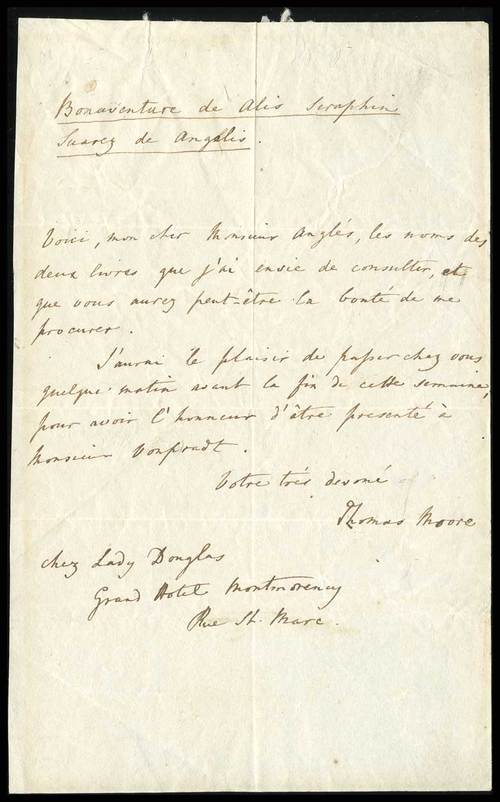 Bonaventure de Alis Seraphin
Suarez de Angelis.
Voici, mon cher Monsieur Anglés, les noms des
deux livres que j'ai envie de consulter, et
que vous aurez peut-être la bonté de me
procurer.
J'aurai le plaisir de passer chez vous
quelque matin avant la fin de cette semaine,
pour avoir l'honneur d'être presenté à
Monsieur Vonpradt.
Votre très devoué
Thomas Moore
chez Lady Douglas
Grand Hotel Montmorency
Rue St. Marc.